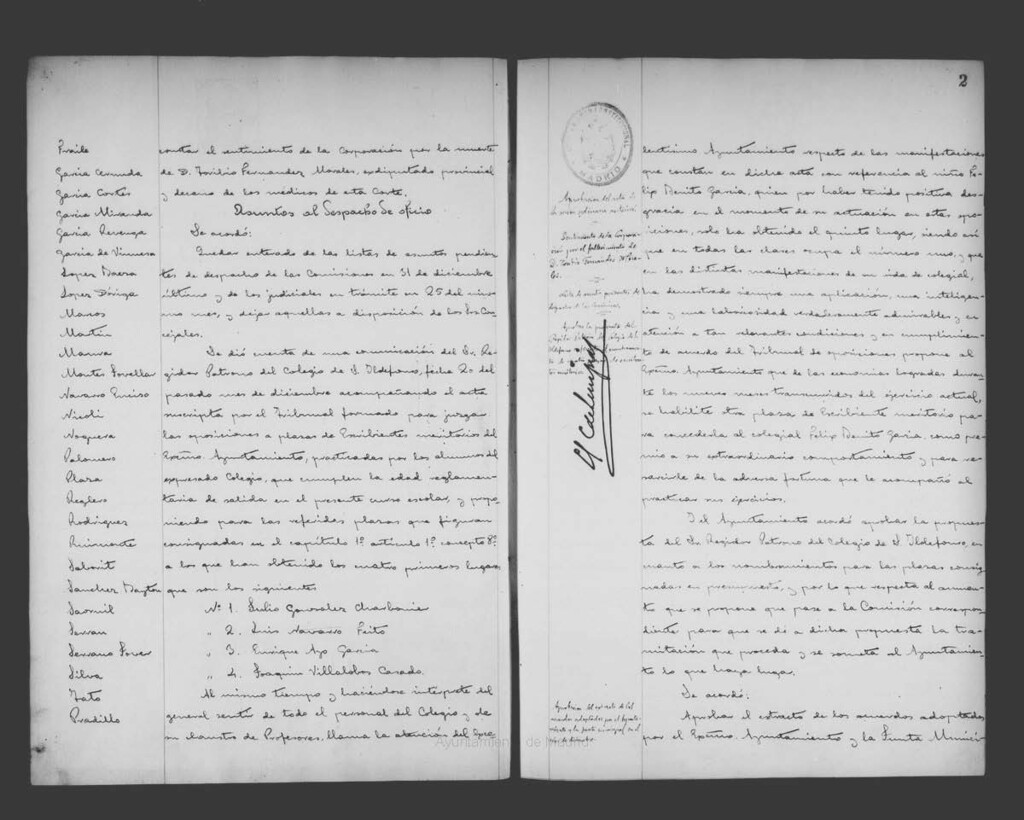 Fraile
García Aranda
García Cortés
García Miranda
García Revenga
García de Vinuesa
López Baeza
López Dóriga
Marcos
Martín
Maura
Montes Jovellar
Navarro Enciso
Nicoli
Noguera
Palomero
Plaza
Reglero
Rodríguez
Ruimonte
Saborit
Sánchez Baytón
Sacristil
Serrán
Serrano Jover
Silva
Tato
Pradillo
constar el sentimiento de la Corporación por la muerte
de D. Toribio Fernandez Morales, exdiputado provincial
y decano de los médicos de esta Corte.
Asuntos al Despacho de oficio
Se acordó:
Quedar enterado de las listas de asuntos pendien-
tes de despacho de las Comisiones en 31 de diciembre
último y de los judiciales en trámite en 25 del mis-
mo mes, y dejar aquellas a disposición de los Sres Con-
cejales.
Se dió cuenta de una comunicación del Sr. Re-
gidor Patrono del Colegio de S. Ildefonso, fecha 20 del
pasado mes de diciembre acompañando el acta
suscripta por el Tribunal formado para juzgar
las oposiciones a plazas de Escribientes meritorios del
Excmo. Ayuntamiento, practicadas por los alumnos del
expresado Colegio, que cumplen la edad reglamen-
taria de salida en el presente curso escolar, y propo-
niendo para las referidas plazas que figuran
consignadas en el capítulo 1º artículo 1º concepto 8º
a los que han obtenido los cuatro primeros lugares
que son los siguientes
Nº 1. Julio Gonzalez Charbonier
" 2. Luis Navarro Feito
" 3. Enrique Azo García
" 4. Joaquín Villalobos Casado.
Al mismo tiempo y haciéndose intérprete del
general sentir de todo el personal del Colegio y de
su claustro de Profesores, llama la atención del Exce-
2
AYUNTAMIENTO CONSTITUCIONAL
MADRID
Aprobación del acta de
la sesión anterior
Sentimiento de la Corpora-
ción por el fallecimiento de
D. Toribio Fernandez Mora-
les.
Lista de asuntos pendientes de
despacho de las Comisiones
lentísimo Ayuntamiento respecto de las manifestaciones
que constan en dicha acta con referencia al niño Fe-
lix Benito García, quien por haber tenido positiva des-
gracia en el momento de su actuación en estas opo-
siciones, solo ha obtenido el quinto lugar, siendo así
que en todas las clases ocupa el número uno, y que
en las distintas manifestaciones de su vida de colegial,
ha demostrado siempre una aplicación, una inteligen-
cia y una laboriosidad verdaderamente admirables y en
atención a tan relevantes condiciones y en cumplimien-
to de acuerdo del Tribunal de oposiciones propone al
Excmo. Ayuntamiento que de las economías logradas duran-
te los nueve meses transcurridos del ejercicio actual,
se habilite otra plaza de Escribiente meritorio pa-
ra concederla al colegial Felix Benito García, como pre-
mio a su extraordinario comportamiento y para re-
sarcirle de la adversa fortuna que le acompañó al
practicar sus ejercicios.
Y el Ayuntamiento acordó aprobar la propues-
ta del Sr. Regidor Patrono del Colegio de S. Ildefonso, en
cuanto a los nombramientos para las plazas consig-
nadas en presupuesto, y por lo que respecta al aumen-
to que se propone que pase a la Comisión correspon-
diente para que se dé a dicha propuesta la tra-
mitación que proceda y se someta al Ayuntamien-
to lo que haya lugar.
Se acordó:
Aprobación del extracto de los
acuerdos adoptados por el Ayunta-
miento y la Junta municipal en el
mes de diciembre.
Aprobar el extracto de los acuerdos adoptados
por el Excmo. Ayuntamiento y la Junta Munici-
Ayuntamiento de Madrid